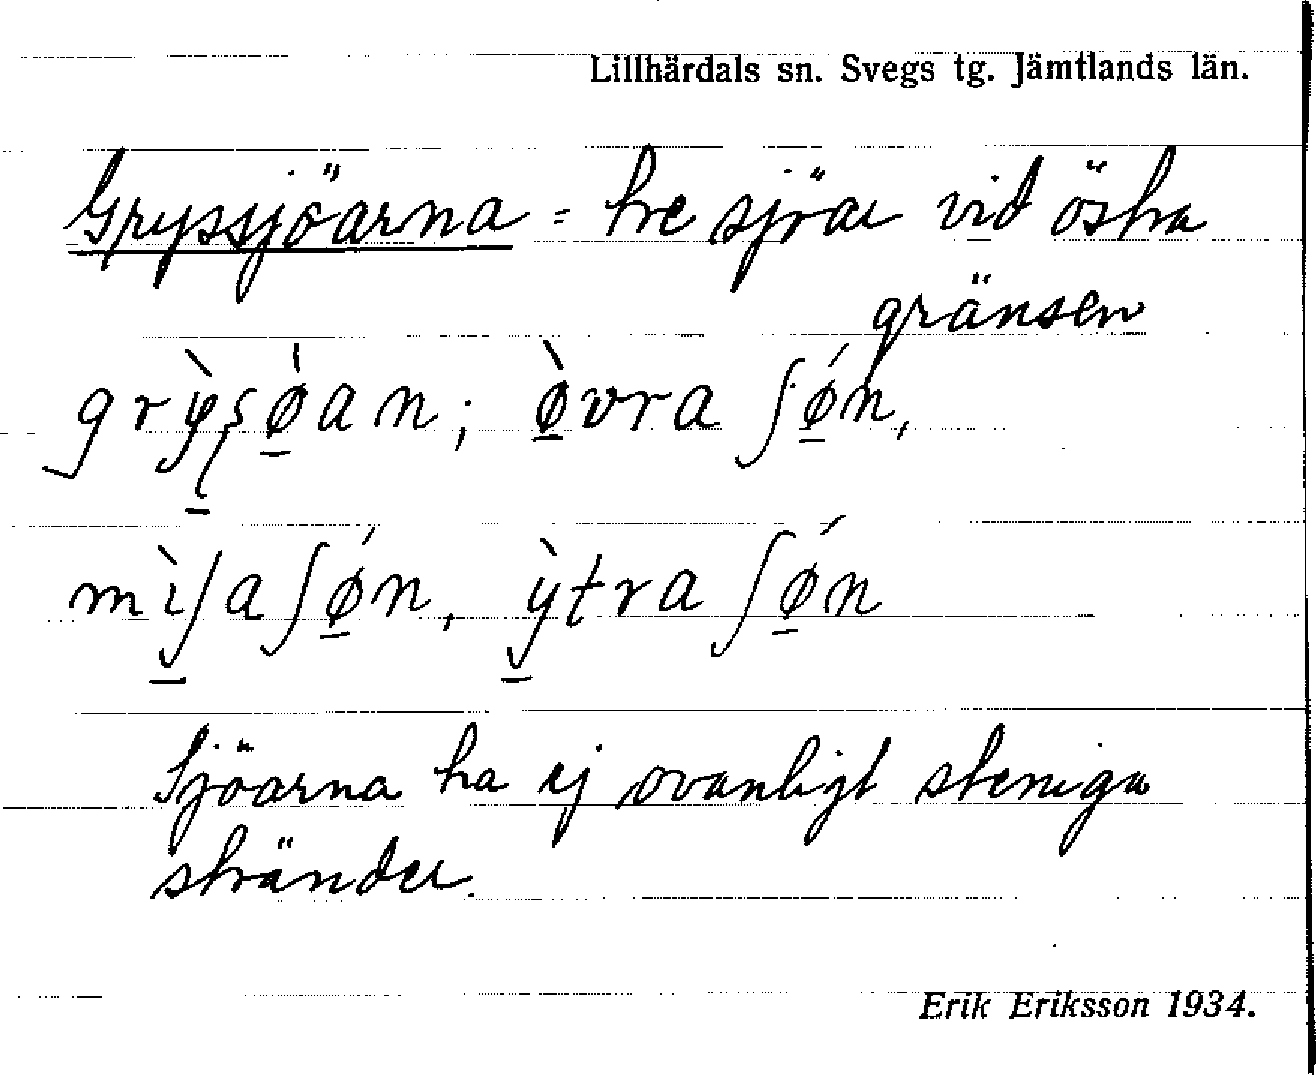 Lillhärdals sn. Svegs tg. Jämtlands län.
Gryssjöarna = tre sjöar vid östra
gränsen
grỳ̠ʂø̠̀an; ø̠̀vra ʃǿ̠n,
mì̠ʃa ʃǿ̠n, ỳ̠tra ʃǿ̠n
Sjöarna ha ej ovanligt steniga
stränder.
Erik Eriksson 1934.